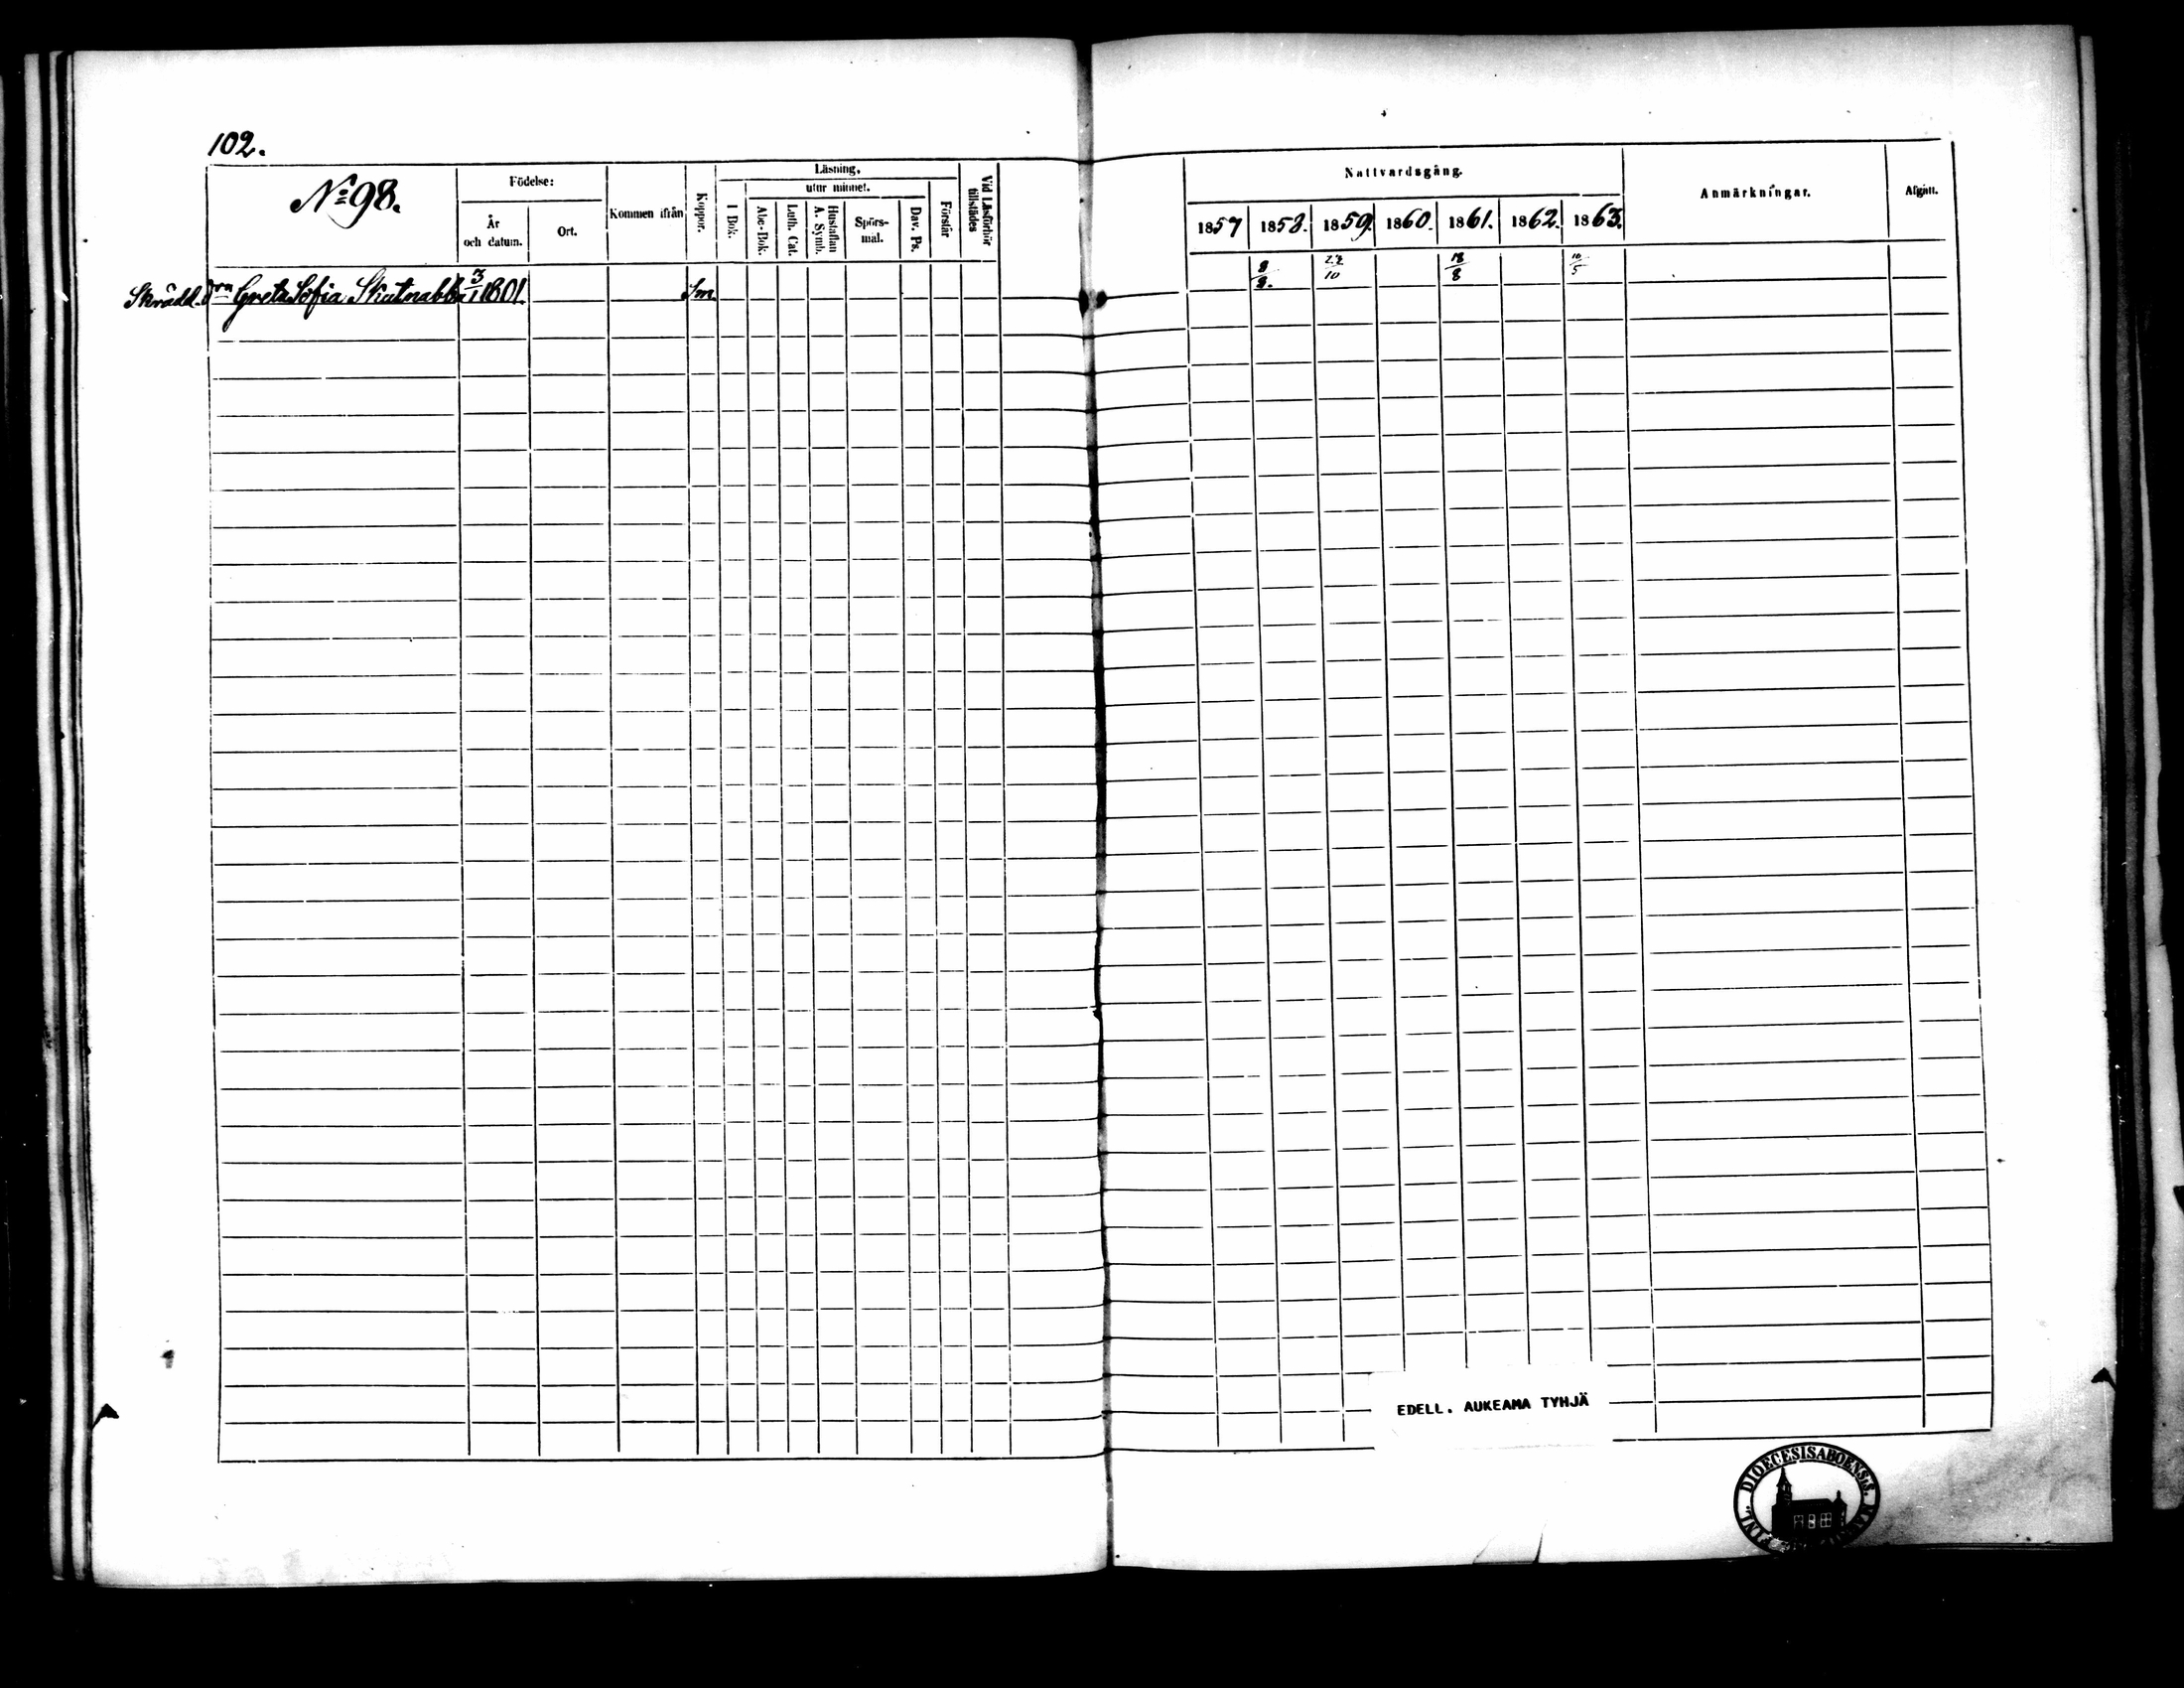 102.
No 98.
Födelse:
År och datum.
Ort.
Kommen ifrån
Koppor.
Läsning,
I Bok.
utur minnet.
Abc-Bok.
Luth. Cat.
Hustaflan A. Symb.
Spörs-mål.
Dav. Ps.
Förstår
Vid Läsförhör tillstädes
Nattvardsgång.
1857 1858. 1859. 1860. 1861. 1862. 1863.
Anmärkningar.
Afgått.
Skrädd. Greta Sofia Skutnabb 3/1 1801. Sm. 8/8. 10 18/8 10/5
EDELL. AUKEAMA TYHJÄ
DIOECESIS ABOENSIS